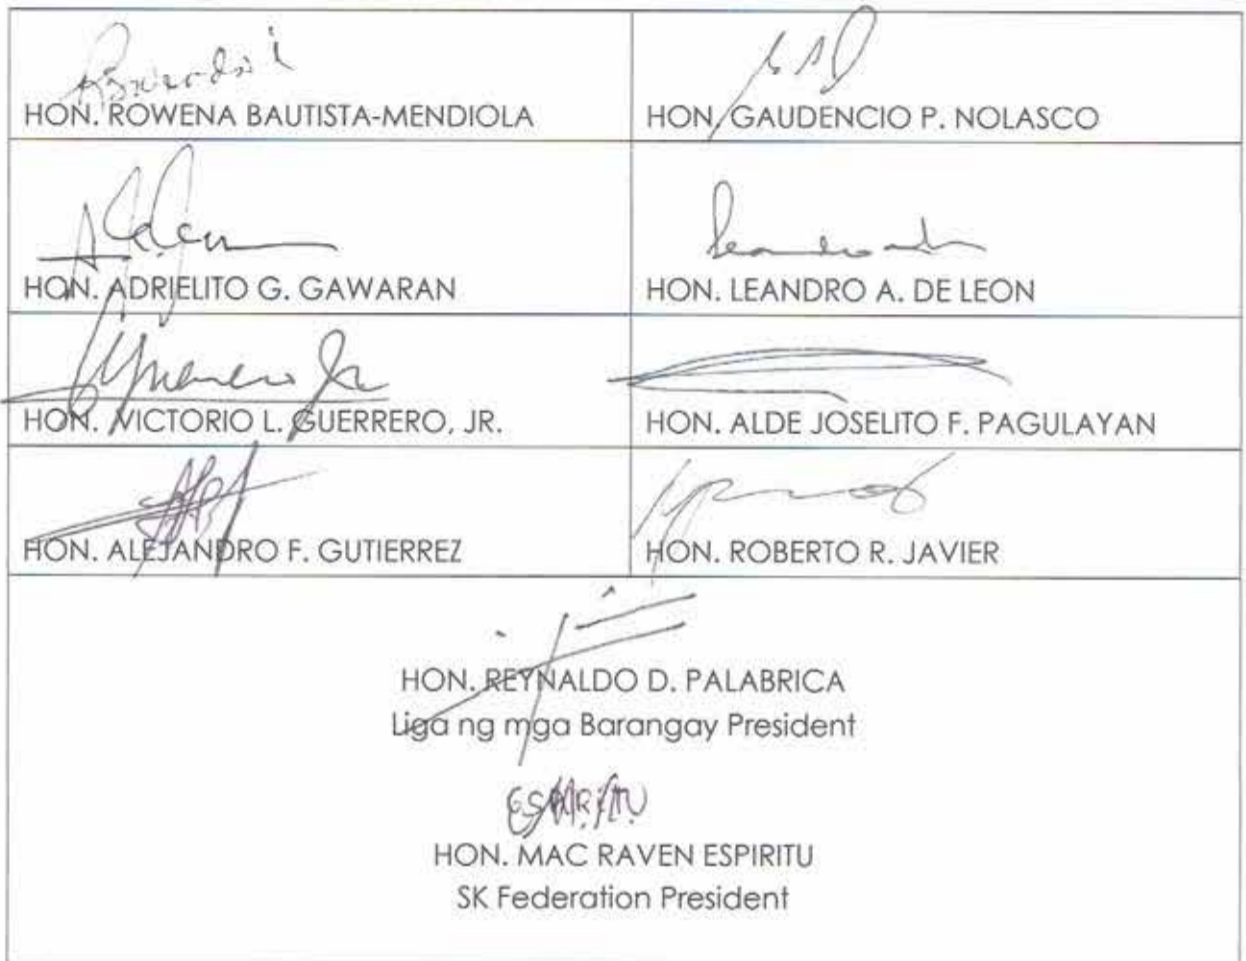 HON. ROWENA BAUTISTA-MENDIOLA
HON. GAUDENCIO P. NOLASCO
HON. ADRIELITO G. GAWARAN
HON. LEANDRO A. DE LEON
HON. VICTORIO L. GUERRERO, JR.
HON. ALDE JOSELITO F. PAGULAYAN
HON. ALEJANDRO F. GUTIERREZ
HON. ROBERTO R. JAVIER
HON. REYNALDO D. PALABRICA
Liga ng mga Barangay President
HON. MAC RAVEN ESPIRITU
SK Federation President